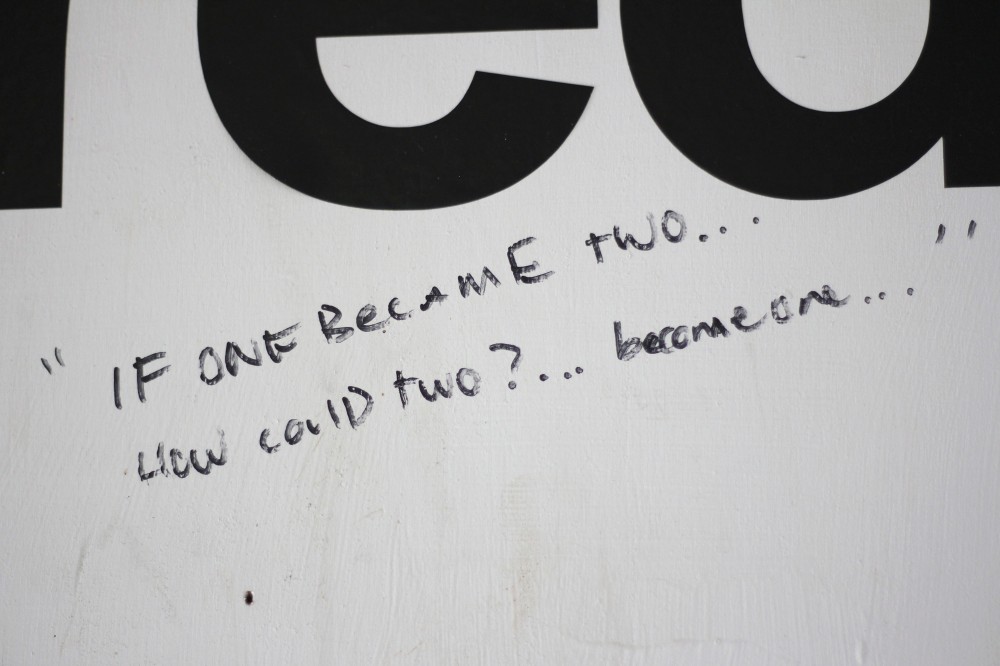 rea
" IF ONE BecAME two... "
How coulD two?... become one...